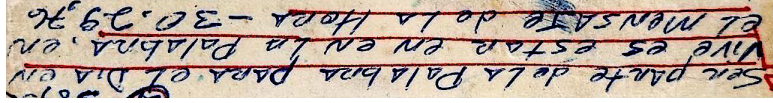 Ser parte de La Palabra para el Dia en
Vive es estar en en La Palabra, en
el mensaje de La Hora - 30.29,76